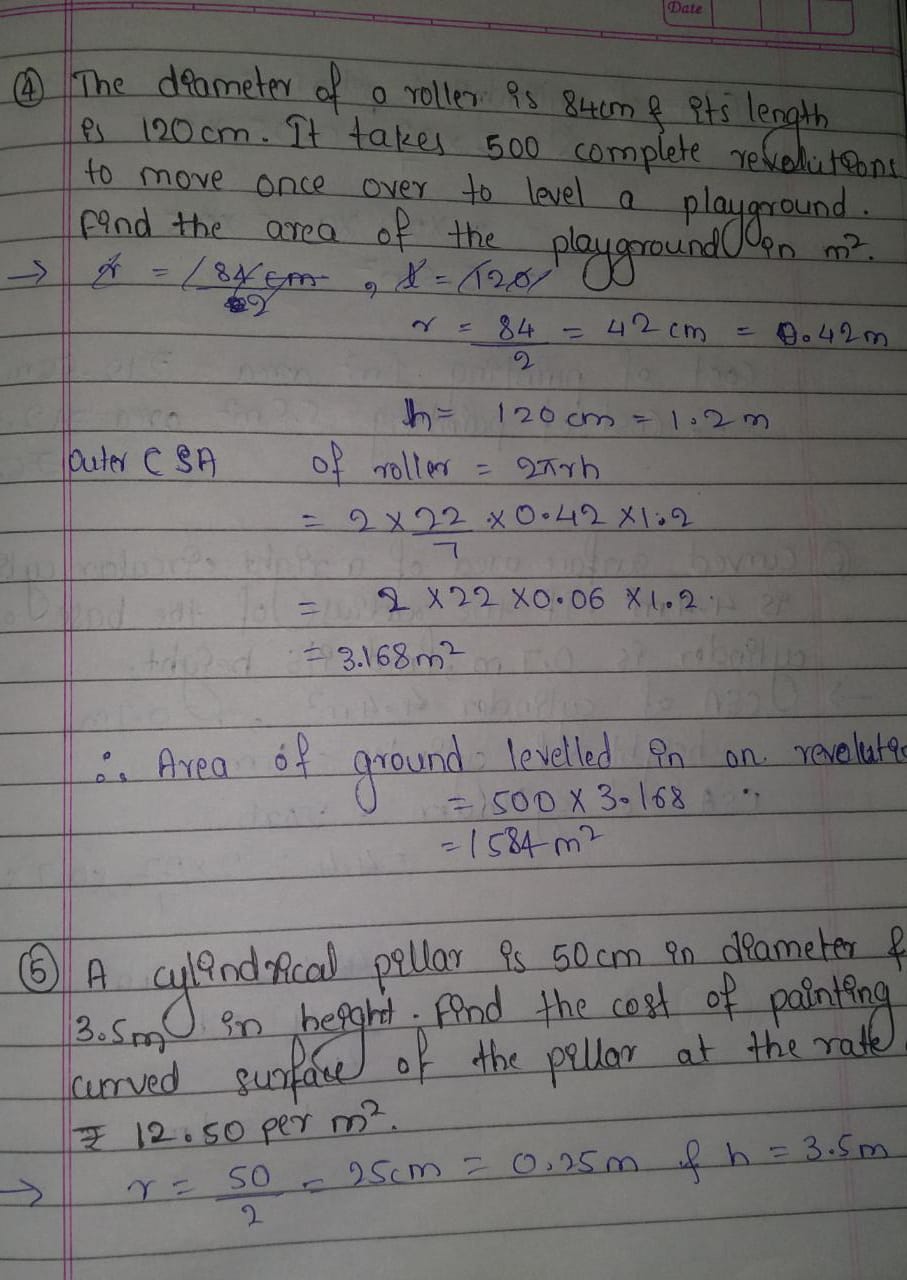 Date
④ The diameter of a roller is 84cm & its length
is 120cm. It takes 500 complete revolutions
to move once over to level a playground.
find the area of the playground in m².
→ r = 84 cm / 2 , l = 120
r = 84/2 = 42 cm = 0.42m
h = 120 cm = 1.2 m
Outer CSA of roller = 2πrh
= 2 × 22/7 × 0.42 × 1.2
= 2 × 22 × 0.06 × 1.2
= 3.168 m²
∴ Area of ground levelled in on revolutio
= 500 × 3.168
= 1584 m²
⑤ A cylindrical pillar is 50cm in diameter &
3.5m in height. Find the cost of painting
curved surface of the pillar at the rate
₹ 12.50 per m².
→ r = 50/2 = 25cm = 0.25m & h = 3.5m